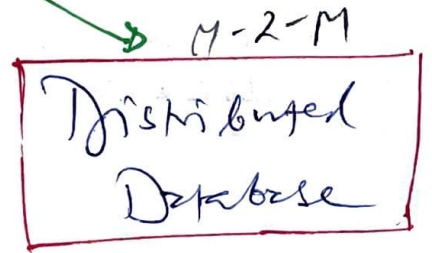 M-2-M
Distributed
Database